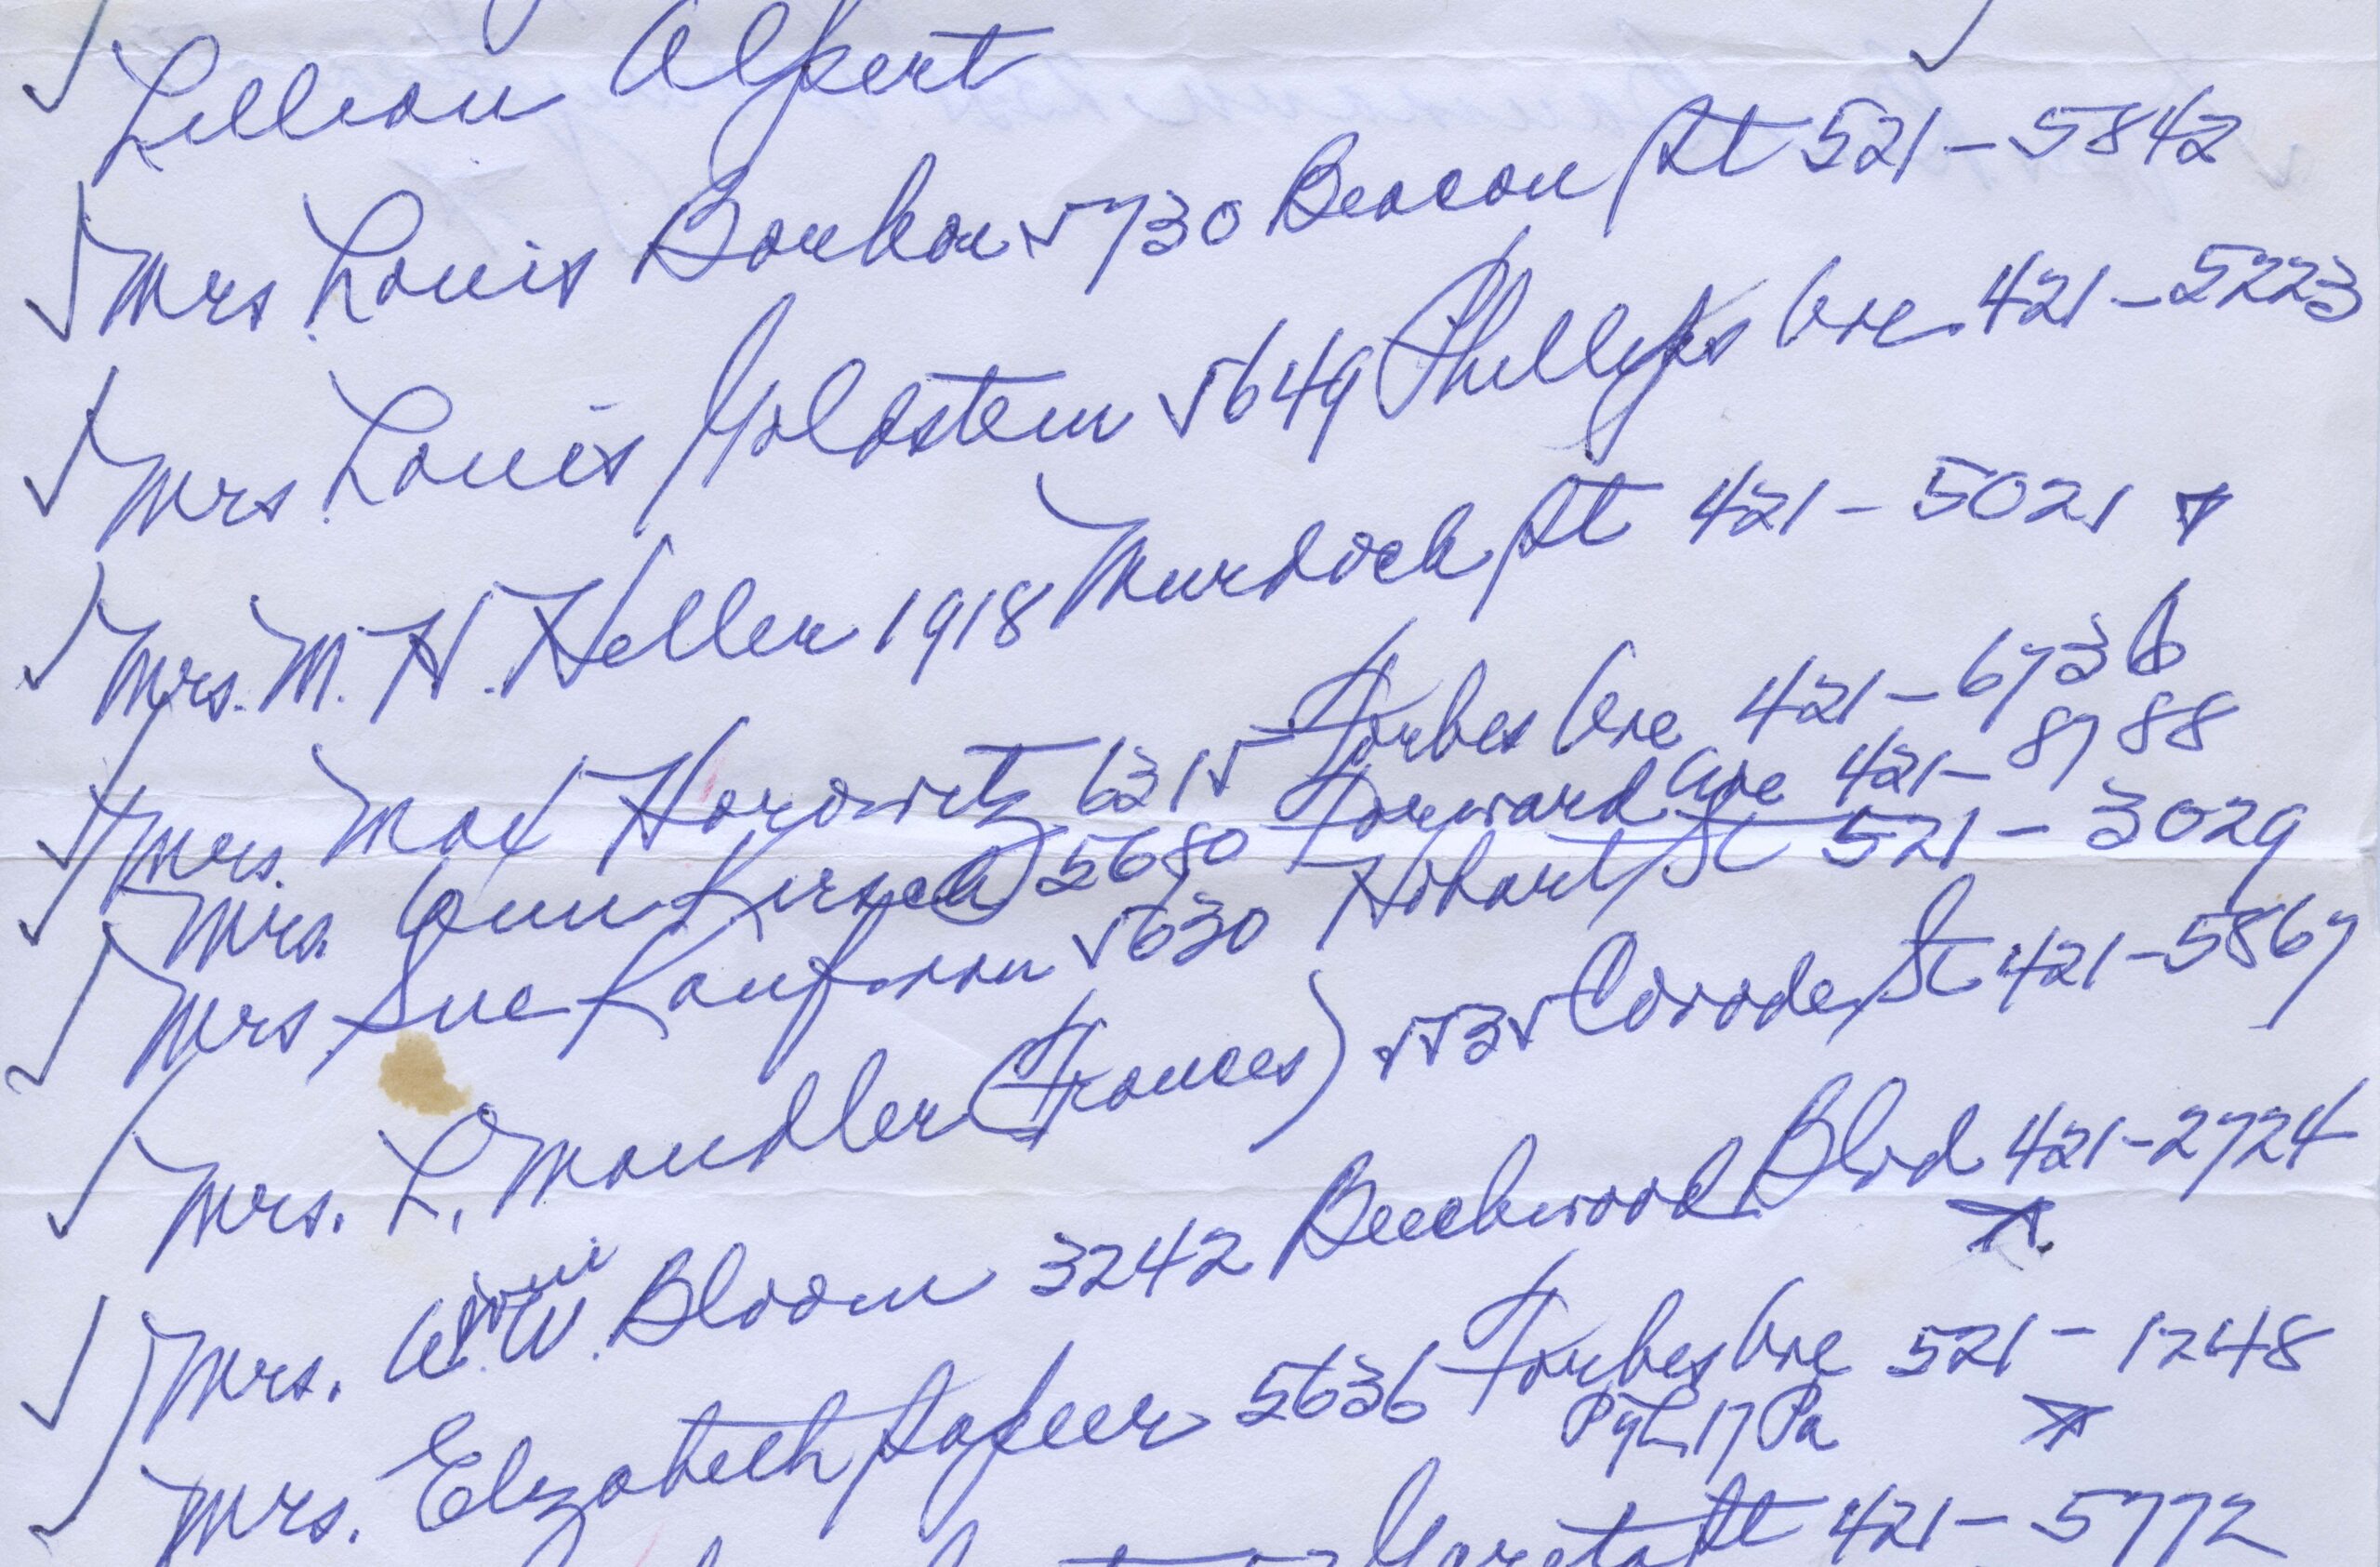 Lillian Alpert
Mrs Louis 5730 Beacon St 521-5842
Mrs. Louis Goldstein 5649 Phillips Ave. 421-5223
Mrs. M. H. Heller 1918 Murdock St 421-5021
Mrs. Max Horowitz 6315 Forbes Ave 421-6736
Mrs. Ann Kirsch 5680 Forward Ave 421-8788
Mrs Sue Kaufman 5630 Hobart St 521-3029
Mrs. L. Mandler (Frances) 5535 Covode St 421-5867
Mrs. W. Bloom 3242 Beechwood Blvd 421-2724
Mrs. Elizabeth 5636 Forbes Ave 521-1248
Pgh 17 Pa
St 421-5772